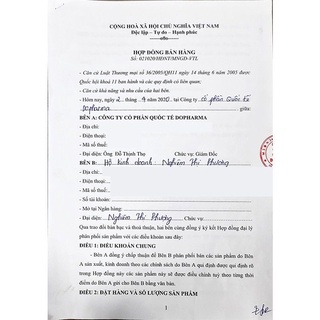 CỘNG HOÀ XÃ HỘI CHỦ NGHĨA VIỆT NAM
Độc lập – Tự do – Hạnh phúc
-----o0o-----
HỢP ĐỒNG BÁN HÀNG
Số: 021020/HĐNT/MNGD-VTL
- Căn cứ Luật Thương mại số 36/2005/QH11 ngày 14 tháng 6 năm 2005 được
Quốc hội khoá 11 ban hành và các quy định có liên quan;
- Căn cứ khả năng và nhu cầu của hai bên.
- Hôm nay, ngày 2 tháng 9 năm 2020, tại Công ty cổ phần Quốc tế
Dopharma giữa:
BÊN A: CÔNG TY CỔ PHẦN QUỐC TẾ DOPHARMA
- Địa chỉ:
- Điện thoại:
- Mã số thuế:
- Đại diện: Ông Đỗ Thịnh Thụ Chức vụ: Giám Đốc
BÊN B: Hộ kinh doanh: Nghiêm Thị Phương
- Địa chỉ:
- Điện thoại:
- Mã số thuế:
- Số tài khoản:
- Mở tại Ngân hàng:
- Đại diện: Nghiêm Thị Phương Chức vụ:
Qua trao đổi bàn bạc và thoả thuận, hai bên cùng đồng ý ký kết Hợp đồng đại lý
phân phối sản phẩm với các điều khoản sau đây:
ĐIỀU 1: ĐIỀU KHOẢN CHUNG
- Bên A đồng ý chấp thuận để Bên B phân phối bán các sản phẩm do Bên
A sản xuất, kinh doanh theo các chính sách do Bên A qui định được qui định rõ
trong Hợp đồng này các sản phẩm này sẽ được điều chỉnh tuỳ theo từng thời
điểm do Bên A gửi cho Bên B bằng văn bản.
ĐIỀU 2: ĐẶT HÀNG VÀ SỐ LƯỢNG SẢN PHẨM
1